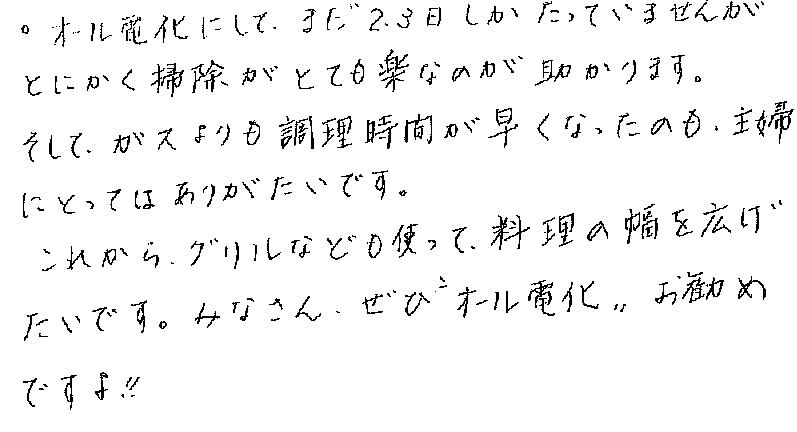 。オール電化にして、まだ2.3日しかたっていませんが
とにかく掃除がとても楽なのが助かります。
そして、ガスよりも調理時間が早くなったのも、主婦
にとってはありがたいです。
これから、グリルなども使って、料理の幅を広げ
たいです。みなさん、ぜひ〝オール電化〟お勧め
ですよ!!